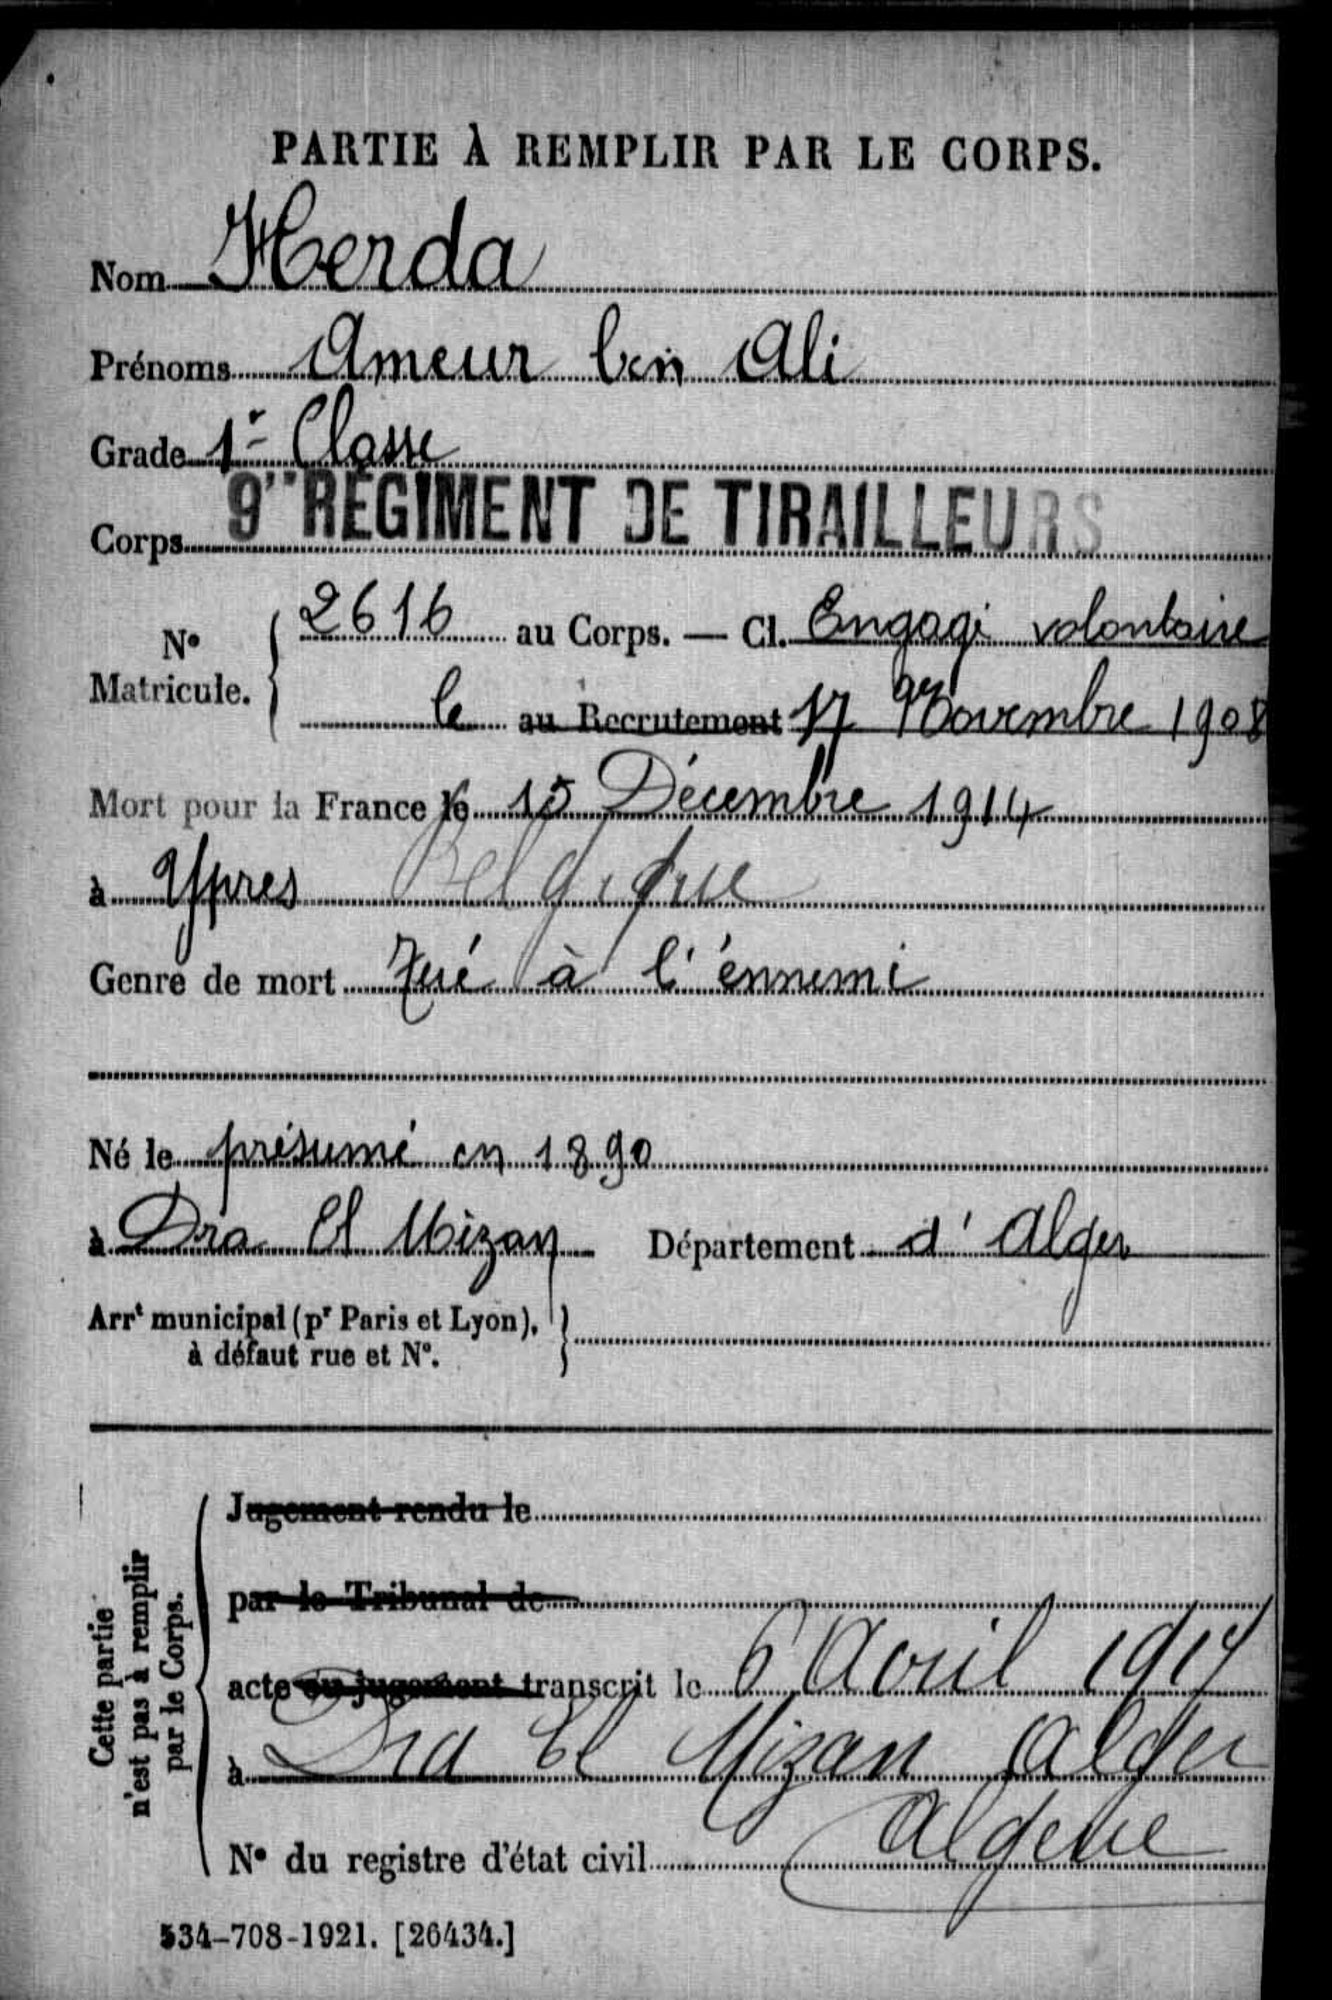 PARTIE À REMPLIR PAR LE CORPS.
Nom Herda
Prénoms Ameur ben Ali
Grade 1re Classe
Corps 9e RÉGIMENT DE TIRAILLEURS
N° Matricule. { 2616 au Corps. — Cl. Engagé volontaire
le au Recrutement 17 9bre Novembre 1908
Mort pour la France le 15 Décembre 1914
à Ypres Belgique
Genre de mort Tué à l'énnemi
Né le présumé en 1890
à Dra El Mizan Département d'Alger
Arrt municipal (pr Paris et Lyon), à défaut rue et N°. }
Cette partie n'est pas à remplir par le Corps. {
Jugement rendu le
par le Tribunal de
acte ou jugement transcrit le 6 Avril 1917
à Dra El Mizan Alger
N° du registre d'état civil Algérie
534-708-1921. [26434.]